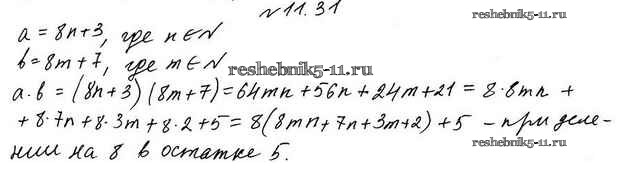 №11.31
reshebnik5-11.ru
a = 8n+3, где n∈N
b = 8m+7, где m∈N
reshebnik5-11.ru
a·b = (8n+3)(8m+7) = 64mn + 56n + 24m + 21 = 8·8mn +
+ 8·7n + 8·3m + 8·2 + 5 = 8(8mn + 7n + 3m + 2) + 5 – при деле-
нии на 8 в остатке 5.
reshebnik5-11.ru
reshebnik5-11.ru